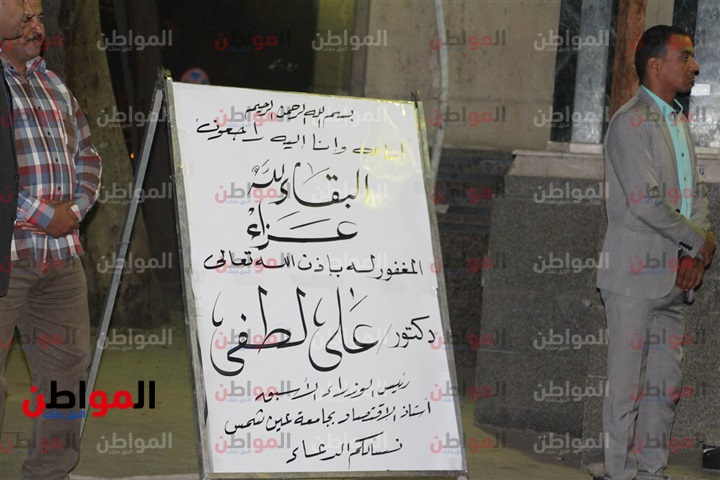 بسم الله الرحمن الرحيم
إنا لله وانا اليه راجعون
البقاء لله
عزاء
المغفور له بإذن الله تعالى
دكتور/ على لطفى
رئيس الوزراء الأسبق
أستاذ الاقتصاد بجامعة عين شمس
نسألكم الدعاء
المواطن